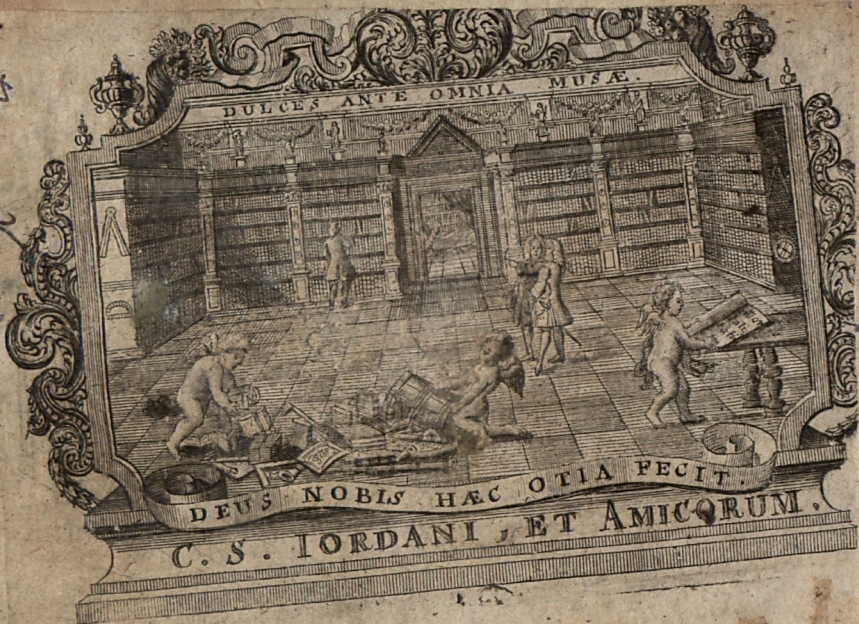 DULCES ANTE OMNIA MUSÆ.
DEUS NOBIS HÆC OTIA FECIT.
C. S. IORDANI, ET AMICORUM.